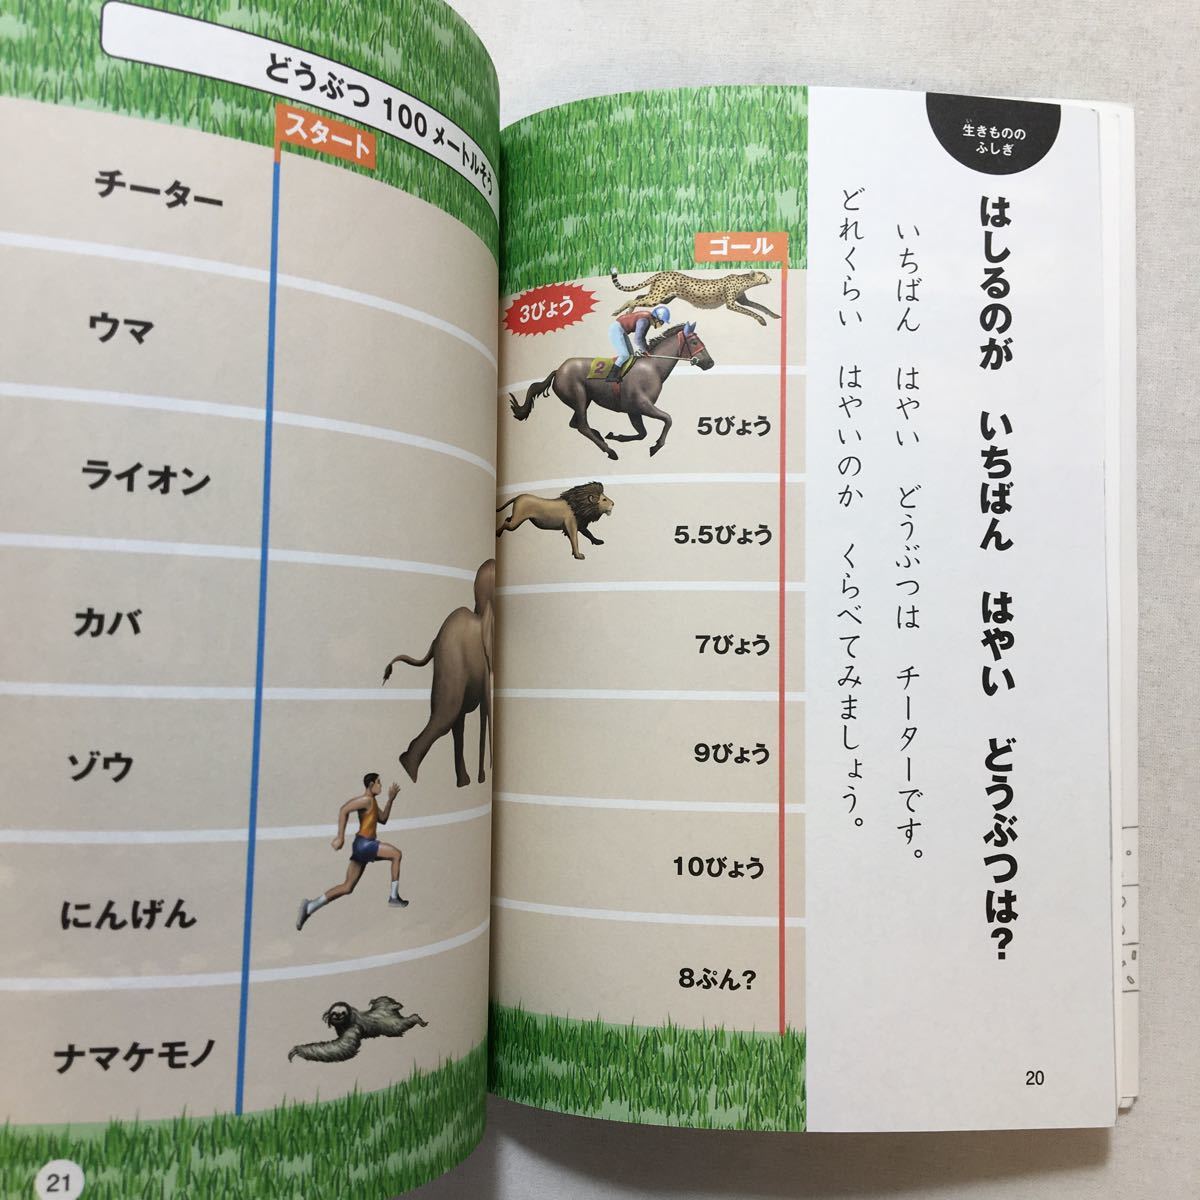 生きものの
い
ふしぎ
はしるのが いちばん はやい どうぶつは?
いちばん はやい どうぶつは チーターです。
どれくらい はやいのか くらべてみましょう。
20
どうぶつ 100メートルそう
スタート
ゴール
チーター
3びょう
ウマ
2
5びょう
ライオン
5.5びょう
カバ
7びょう
ゾウ
9びょう
にんげん
10びょう
ナマケモノ
8ぷん?
21